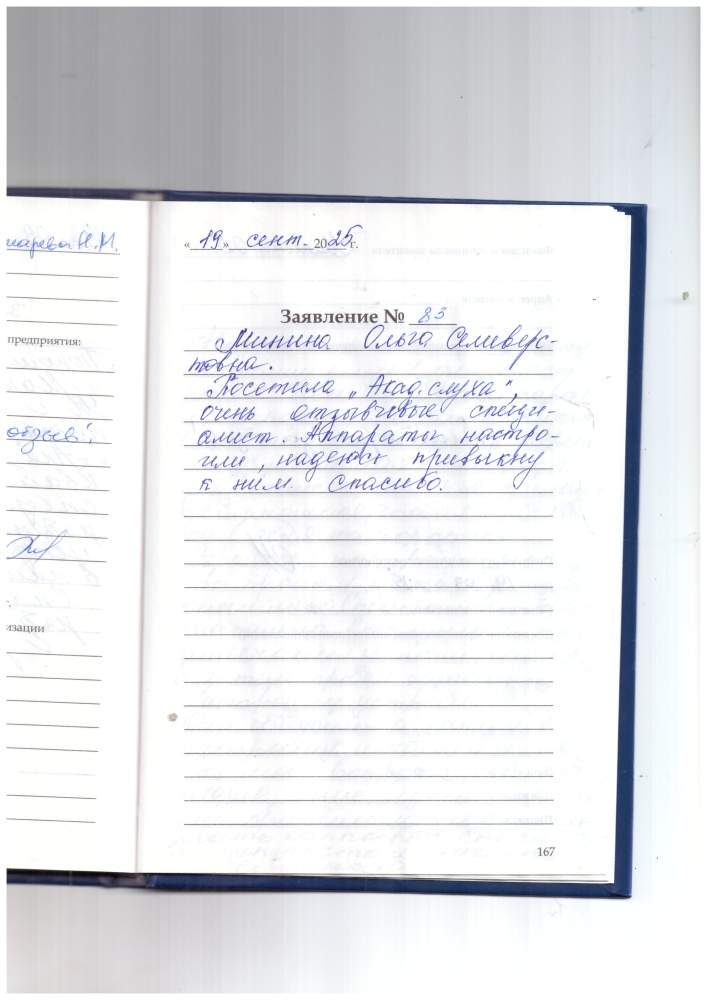 Н.М.
предприятия:
изации
« 19 » сент. 2025г.
Заявление № 83
Минина Ольга Селиверс-
товна.
Посетила „Акад. слуха",
очень отзывчевые специ-
алист. Аппараты настро-
или, надеюсь привыкну
к ним. Спасибо.
167